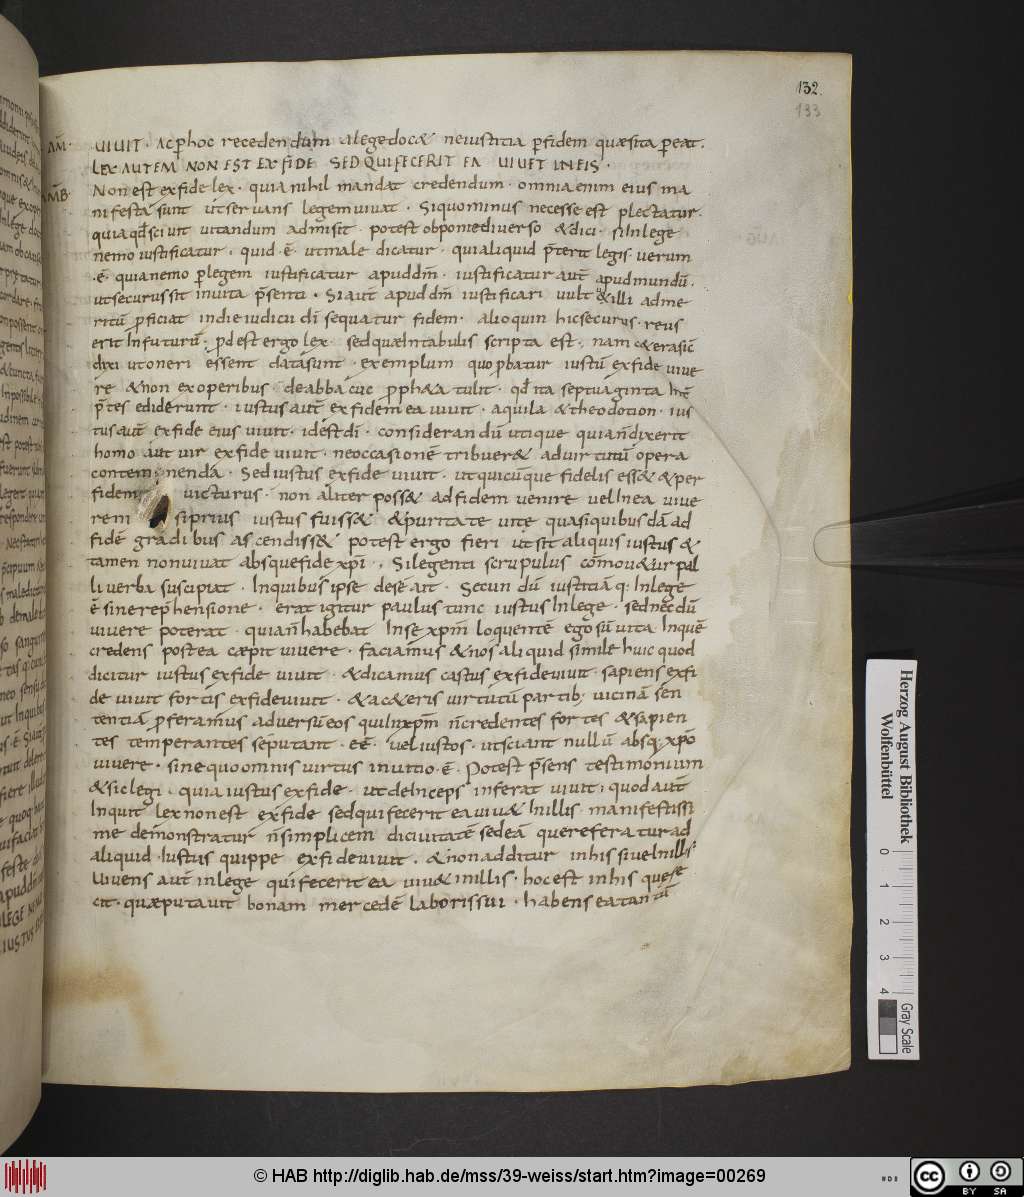 132.
133
AM̄.
UIUIT. Ac p hoc recedendum a lege docet ne iustitia p fidem quæsita p eat.
LEX AUTEM NON EST EX FIDE SED QUI FECERIT EA UIUET IN EIS.
AMB.
Non est ex fide lex. quia nihil mandat credendum. omnia enim eius ma
nifesta sunt ut seruans legem uiuat. Si quominus necesse est plectatur.
quia qđ sciuit uitandum admisit. potest obponi e diuerso & dici. Si In lege
nemo iustificatur. quid ē. ut male dicatur. qui aliquid p̄terit legis. uerum
.ē. quia nemo p legem iustificatur apud dm̄. iustificatur aut̄ apud mundū.
ut securus sit in uita p̄senti. Si aut̄ apud dm̄ iustificari uult & illi ad me
ritū p ficiat in die iudicii di sequatur fidem. alioquin hic securus. reus
erit In futurū. p dest ergo lex. sed quæ In tabulis scripta est. nam cetera sic
dixi ut oneri essent data sunt. exemplum quo p batur iustū ex fide uiue
re & non ex operibus de abbacuc p pheta tulit. qđ ita septuaginta Int̄
p̄tes ediderunt. iustus aut̄ ex fide mea uiuit. aquila & theodotion. ius
tus aut̄ ex fide eius uiuit. id est di. considerandū utique quia n̄ dixerit
homo aut uir ex fide uiuit. ne occasionē tribueret ad uirtutū opera
contemnenda. Sed iustus ex fide uiuit. ut quicūque fidelis esset & per
fidem uicturus. non aliter posset ad fidem uenire uel In ea uiue
re ni si prius iustus fuisset & puritate uitę quasi quibusdā ad
fidē gradibus ascendisset potest ergo fieri ut sit aliquis iustus &
tamen non uiuat absque fide xpi. Si legenti scrupulus cōmouetur pau
li uerba suscipiat. In quibus ipse de se ait. Secundū iustitiā q. In lege
ē sine reprehensione. erat igitur paulus tunc iustus In lege. sed necdū
uiuere poterat. quia n̄ habebat In se xpm̄ loquentē ego sū uita In quē
credens postea cæpit uiuere. faciamus & nos aliquid simile huic quod
dicitur iustus ex fide uiuit. & dicamus castus ex fide uiuit. sapiens ex fi
de uiuit fortis ex fide uiuit. & a ceteris uirtutū partib; uicinā sen
tentiā p̄feramus aduersū eos qui In xpm̄ n̄ credentes fortes & sapien
tes temperantes se putant. eē. uel iustos. ut sciant nullū absq. xpo
uiuere. sine quo omnis uirtus in uitio. ē. Potest p̄sens testimonium
& sic legi. quia iustus ex fide. ut deInceps inferat uiuit; quod aut̄
Inquit lex non est ex fide sed qui fecerit ea uiuet In illis. manifestissi
me demonstratur n̄ simplicem dici uitā sed eā quę referatur ad
aliquid. Iustus quippe ex fide uiuit. & non additur in his siue In illis.
Uiuens aut̄ in lege qui fecerit ea uiuet in illis. hoc est in his quę se
cit. quæ putauit bonam mercedē laboris sui. habens ea tantū
Herzog August Bibliothek
Wolfenbüttel
0 1 2 3 4
Gray Scale
© HAB http://diglib.hab.de/mss/39-weiss/start.htm?image=00269
cc BY SA